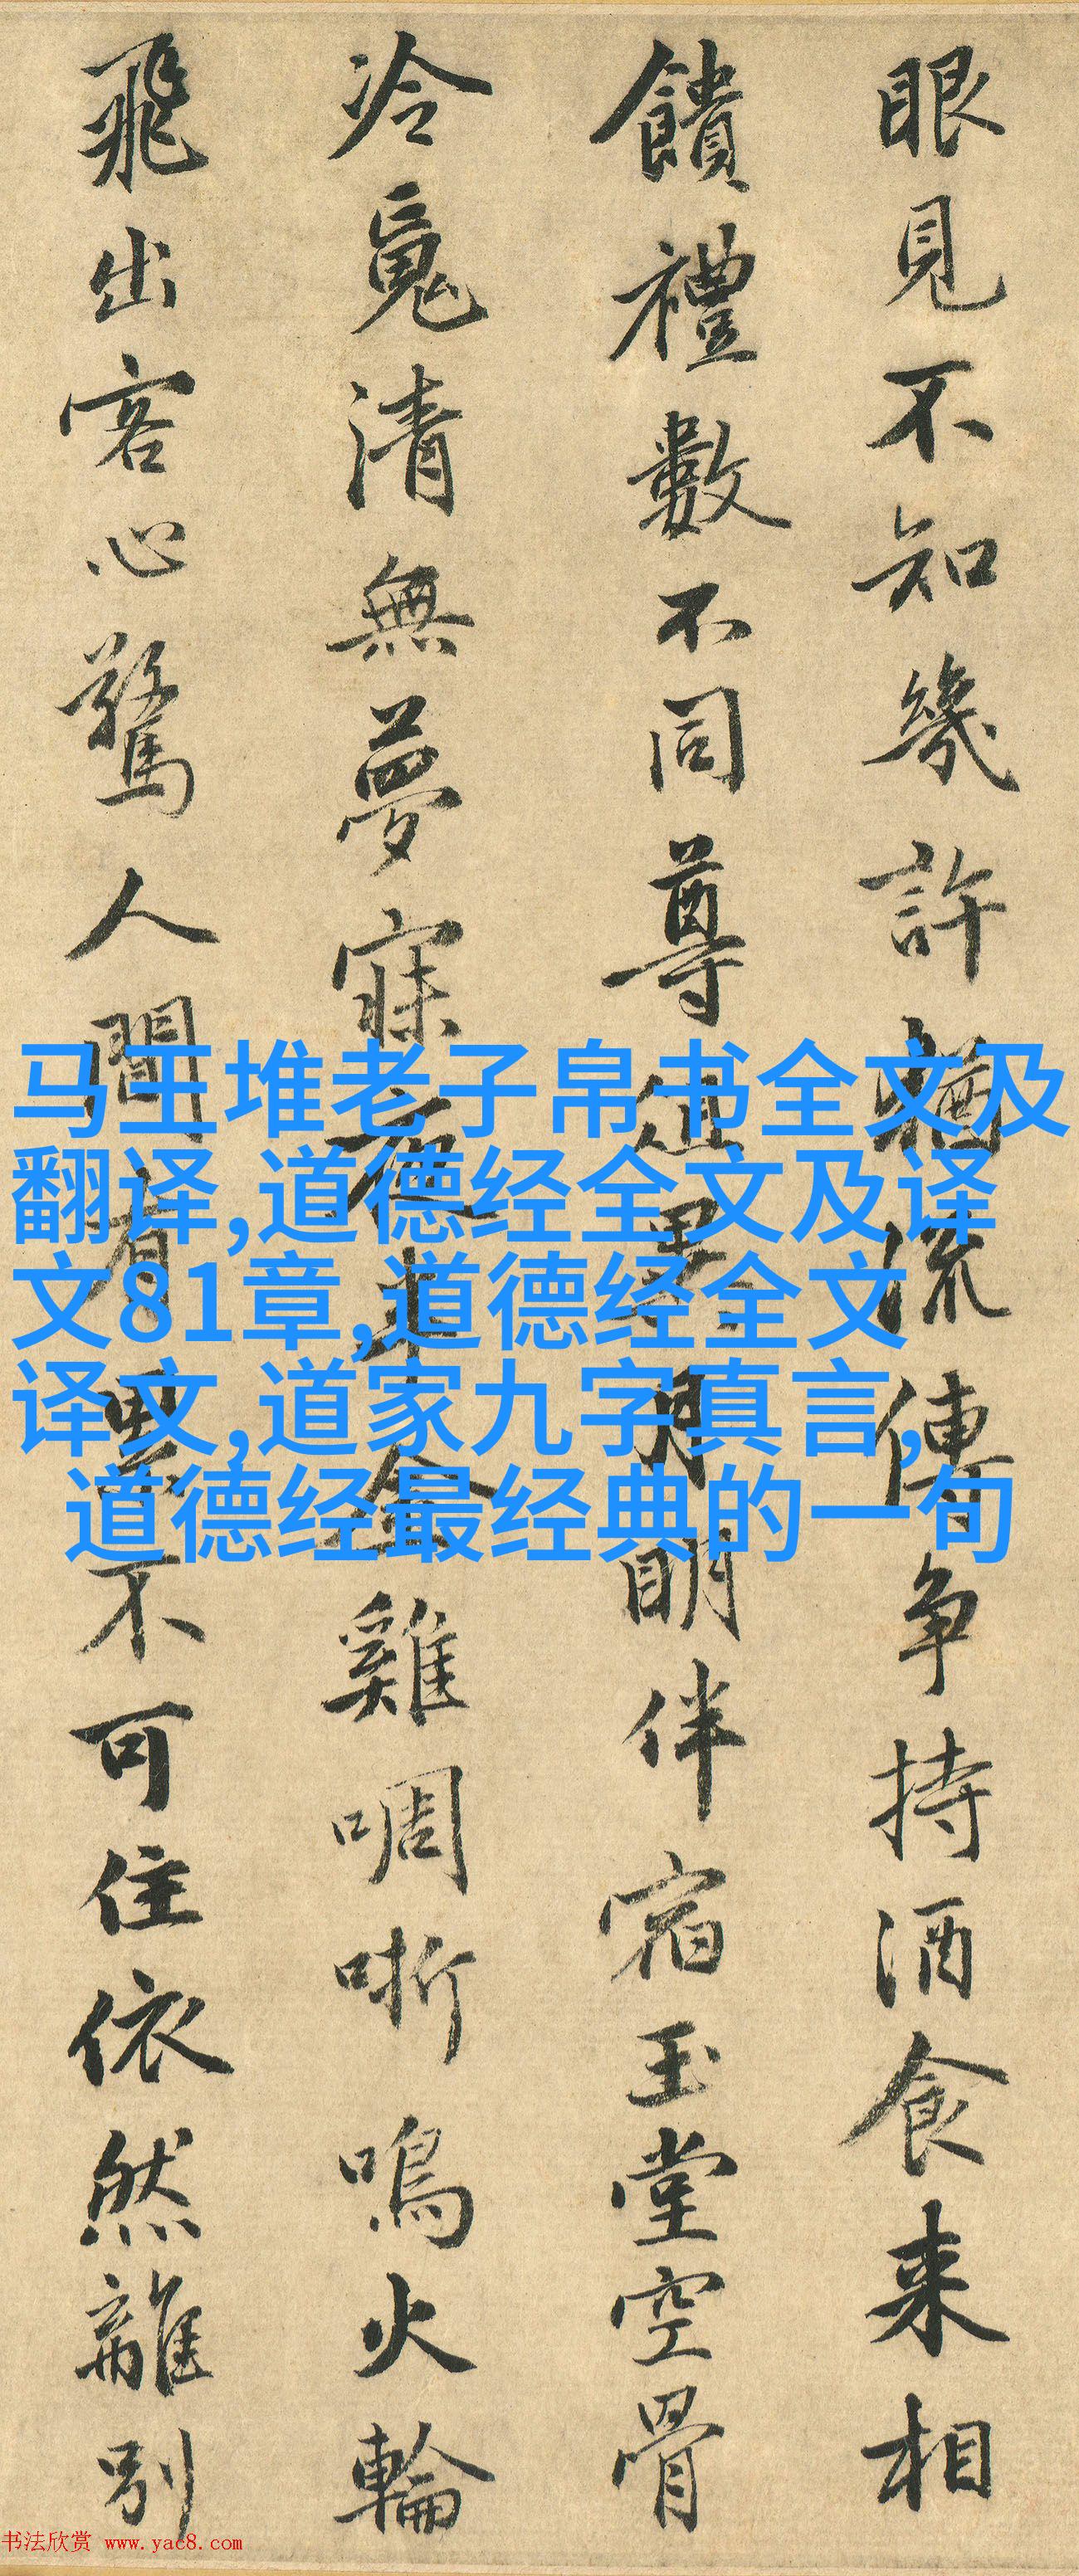 眼見不知幾許猶流傳争持酒食来相
饋禮數不同尊俎異月明伴宿玉堂空骨
冷魂清無夢寐夜半金雞啁哳鳴火輪
飛出客心驚人間有累不可住依然離别
马王堆老子帛书全文及
翻译,道德经全文及译
文81章,道德经全文
译文,道家九字真言,
道德经最经典的一句
书法欣赏 www.yac8.com